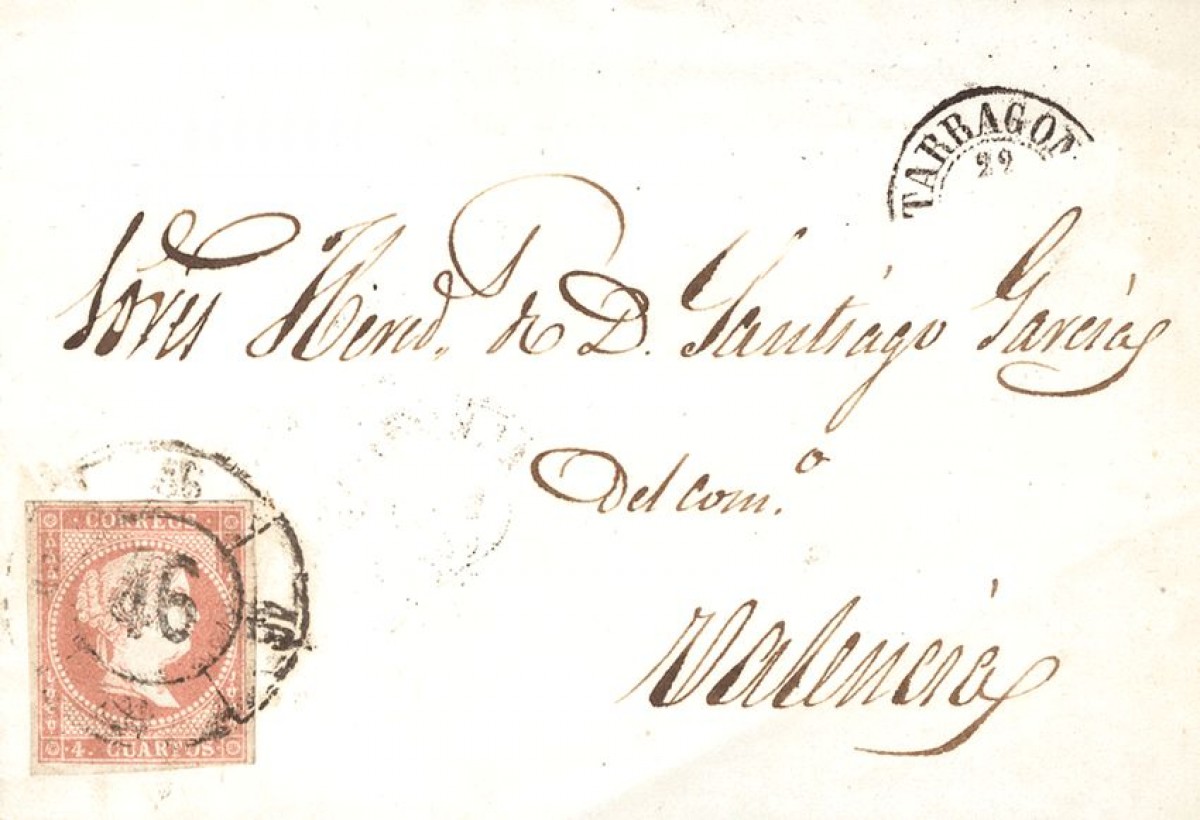 TARRAGON
22
Sores Hered.s de D. Santiago García
Del com.o
Valencia
CORREOS
46
46
4. CUARTOS